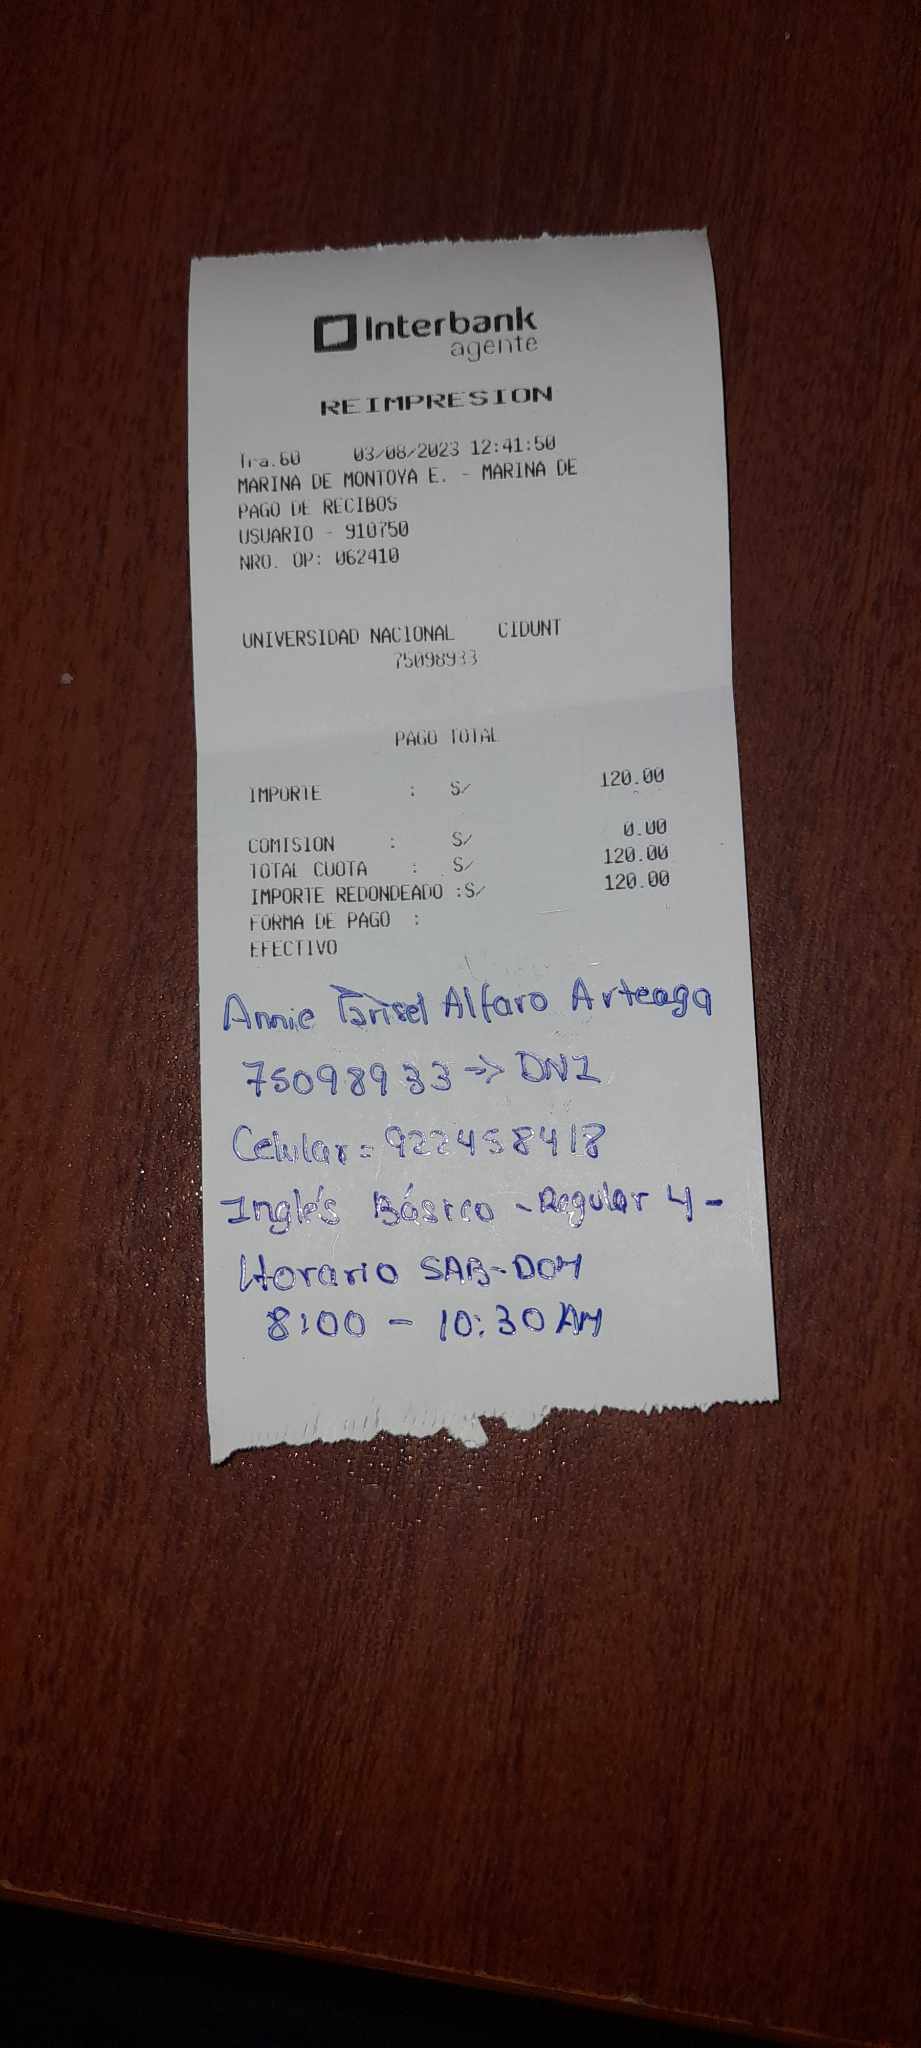 Interbank
agente
REIMPRESION
Tra.60 03/08/2023 12:41:50
MARINA DE MONTOYA E. - MARINA DE
PAGO DE RECIBOS
USUARIO - 910750
NRO. OP: 062410
UNIVERSIDAD NACIONAL CIDUNT
75098933
PAGO TOTAL
IMPORTE : S/ 120.00
COMISION : S/ 0.00
TOTAL CUOTA : S/ 120.00
IMPORTE REDONDEADO :S/ 120.00
FORMA DE PAGO :
EFECTIVO
Annie Alfaro Arteaga
75098933 => DNI
Celular = 922458418
Inglés Básico - Regular 4 -
Horario SAB-DOM
8:00 - 10:30 AM